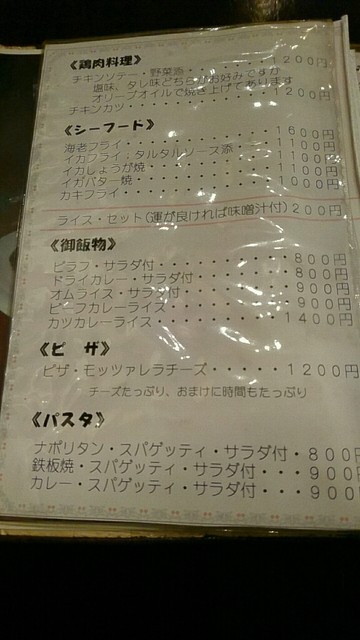 《鶏肉料理》
チキンソテー・野菜添・・・・・・・1200円
塩味、タレ味どちらがお好みですか
オリーブオイルで焼き上げてあります
チキンカツ・・・・・・・・・・・・1200円
《シーフード》
海老フライ・・・・・・・・・・・・1600円
イカフライ・タルタルソース添・・・1100円
イカしょうが焼・・・・・・・・・・1100円
イカバター焼・・・・・・・・・・・1100円
カキフライ・・・・・・・・・・・・1000円
ライス・セット(運が良ければ味噌汁付)200円
《御飯物》
ピラフ・サラダ付・・・・・・・・・800円
ドライカレー・サラダ付・・・・・・800円
オムライス・サラダ付・・・・・・・900円
ビーフカレーライス・・・・・・・・900円
カツカレーライス・・・・・・・・・1400円
《ピ ザ》
ピザ・モッツァレラチーズ・・・・・1200円
チーズたっぷり、おまけに時間もたっぷり
《パスタ》
ナポリタン・スパゲッティ・サラダ付・800円
鉄板焼・スパゲッティ・サラダ付・・・900
カレー・スパゲッティ・サラダ付・・・900